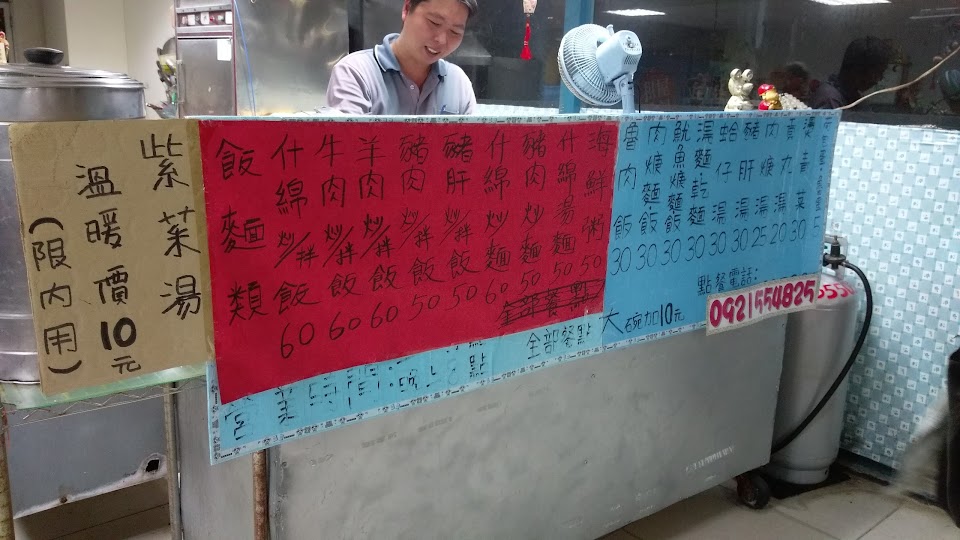 紫菜湯
溫暖價10元
(限內用)
飯麵類
什綿炒/拌飯60
牛肉炒/拌飯60
羊肉炒/拌飯60
豬肉炒/拌飯50
豬肝炒/拌飯50
什綿炒麵60
豬肉炒麵50
什綿湯麵50
海鮮粥50
魯肉飯30
肉焿麵飯30
魷魚焿麵飯30
湯麵乾麵30
蛤仔湯30
豬肝湯30
肉焿湯25
貢丸湯20
燙青菜30
點餐電話:
0921554825
全部餐點
大碗加10元